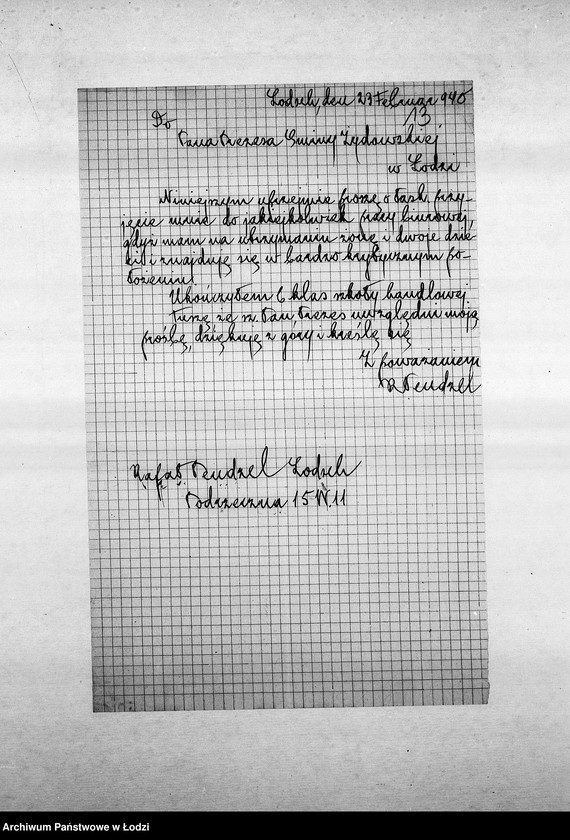 Lodsch, den 29 Februar 940
13
Do
Pana Prezesa Gminy Żydowskiej
w Łodzi
Niniejszym uprzejmie proszę o łask. przy-
jęcie mnie do jakiejkolwiek pracy biurowej,
gdyż mam na utrzymaniu żonę i dwoje dzie-
ci i znajduję się w bardzo krytycznym po-
łożeniu.
Ukończyłem 6 klas szkoły handlowej.
Tuszę że Pan Prezes uwzględni moją
prośbę, dziękuję z góry i kreślę się
Z poważaniem
R Pendzel
Rafał Pendzel Lodsch
Podrzeczna 15 W. 11
Archiwum Państwowe w Łodzi